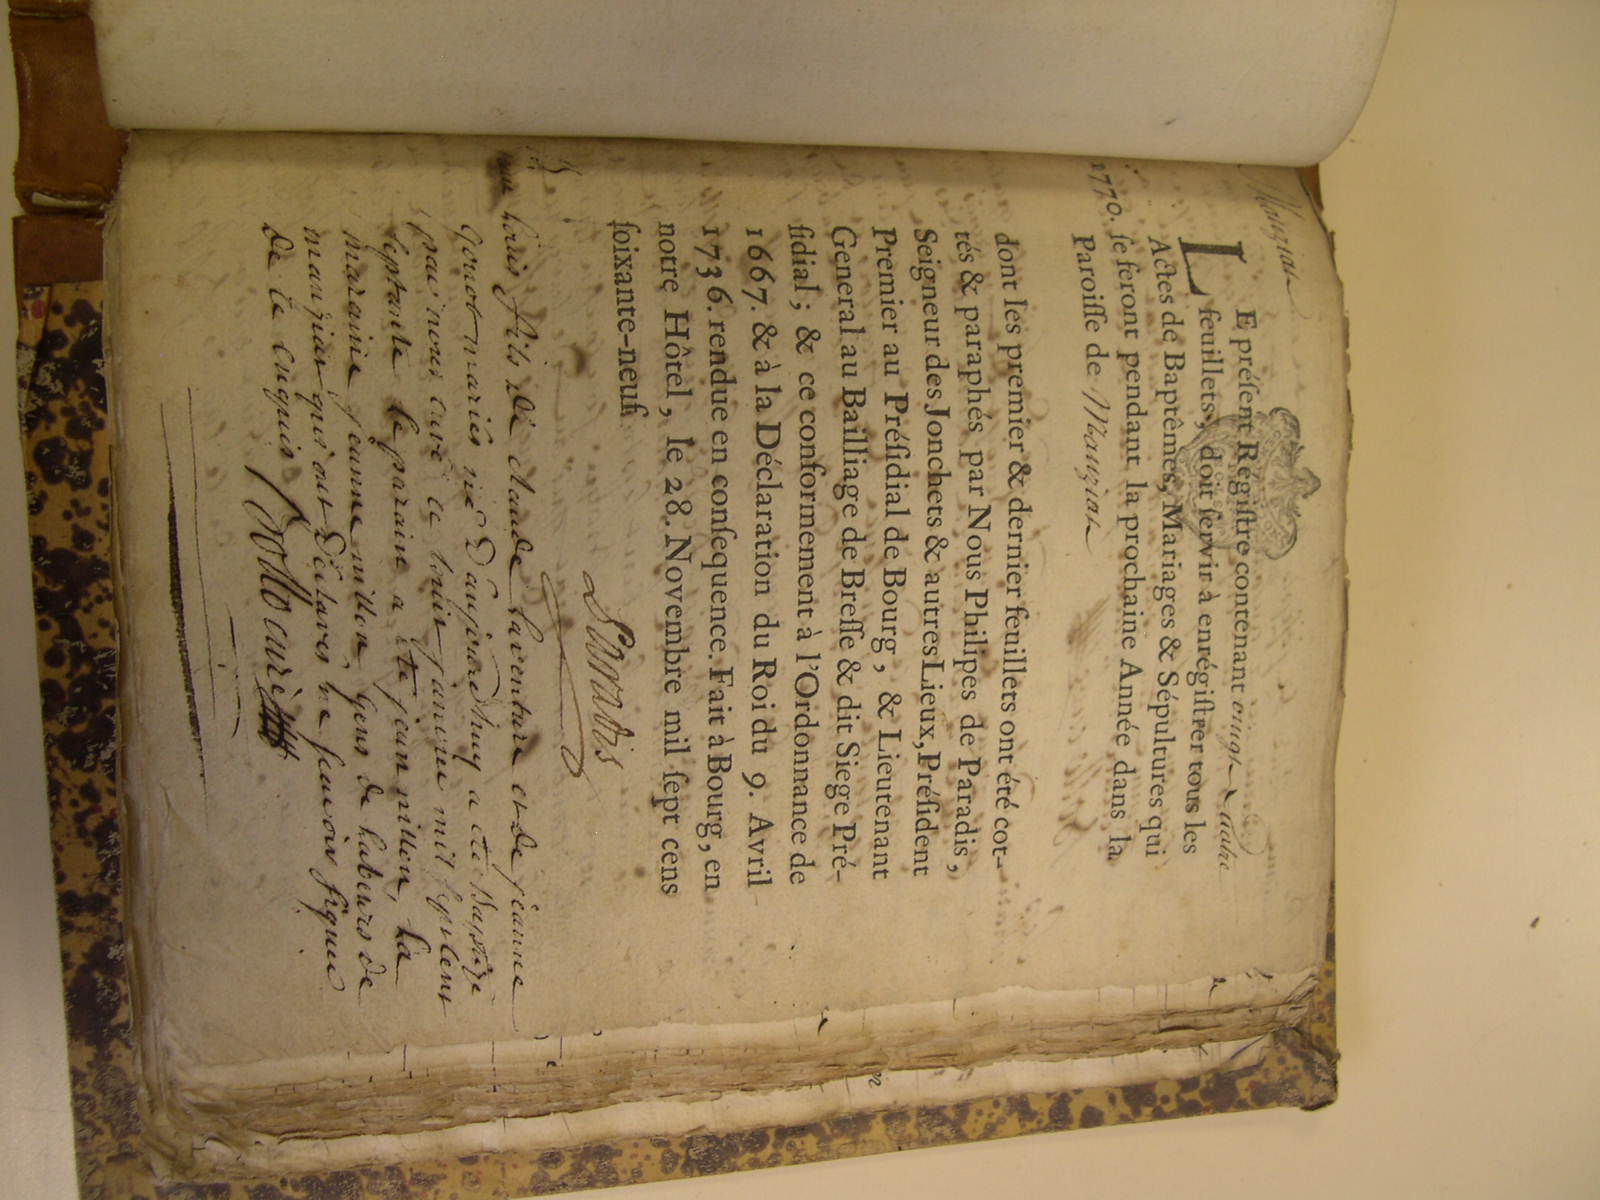 Mauziat
LE préſent Regiſtre contenant vingt quatre
feuillets, doit ſervir à enrégiſtrer tous les
Actes de Baptêmes, Mariages & Sépultures qui
1770. ſe feront pendant la prochaine Année dans la
Paroiſſe de Mauziat
dont les premier & dernier feuillets ont été cot-
tés & paraphés par Nous Philipes de Paradis,
Seigneur des Jonchets & autres Lieux, Préſident
Premier au Préſidial de Bourg, & Lieutenant
General au Bailliage de Breſſe & dit Siege Pré-
ſidial; & ce conformement à l'Ordonnance de
1667. & à la Déclaration du Roi du 9. Avril
1736. rendue en conſequence. Fait à Bourg, en
notre Hôtel, le 28. Novembre mil ſept cens
ſoixante-neuf.
Paradis
fils de Claude laventure et de jeanne
gonot mariés né d'aujourdhuy a été baptizé
par nous curé ce janvier mil sept cent
septante le parain a été jean millon, la
maraine jeanne millon gens de labeurs de
mauziat qui ont déclarés ne sçavoir signer
de ce enquis curé